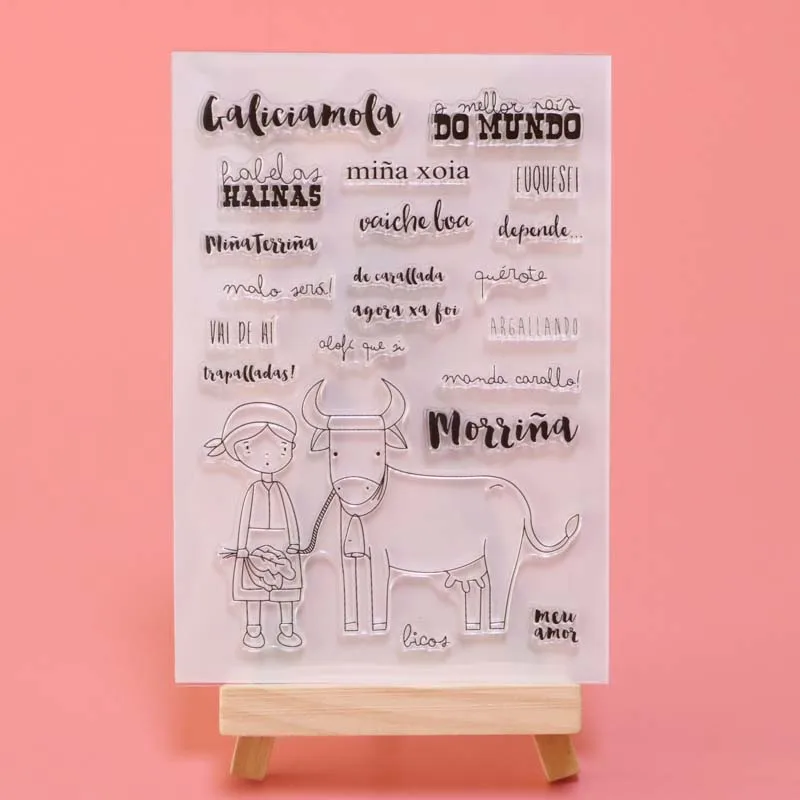 Galiciamola
o mellor país
DO MUNDO
habelas
HAINAS
miña xoia
EUQUESEI
vaiche boa
depende...
Miña Terriña
malo será!
de carallada
quérote
agora xa foi
VAI DE AÍ
ARGALLANDO
alofé que si
trapalladas!
manda carallo!
Morriña
bicos
meu
amor